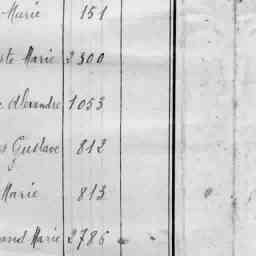 Marie 151
Marie 2300
Alexandre 1053
Gustave 812
Marie 813
Marie 2786